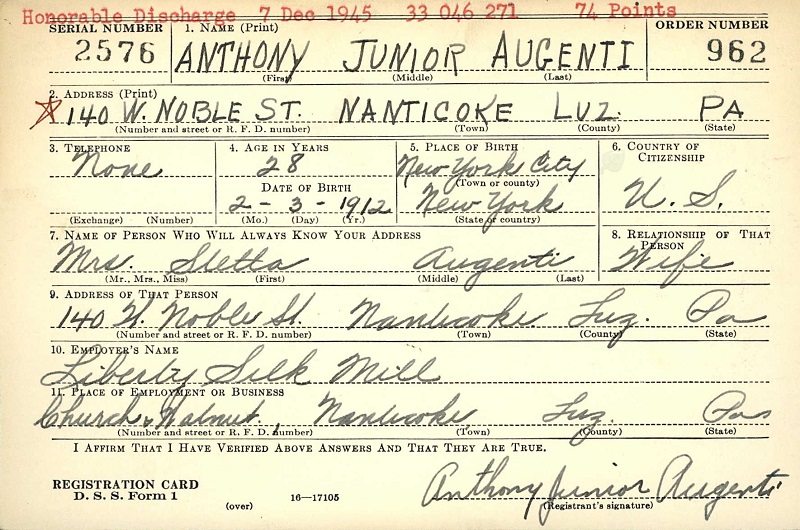 Honorable Discharge 7 Dec 1945 33 046 271 74 Points
SERIAL NUMBER 1. NAME (Print) ORDER NUMBER
2576 ANTHONY JUNIOR AUGENTI 962
(First) (Middle) (Last)
2. ADDRESS (Print)
140 W. NOBLE ST. NANTICOKE LUZ. PA
(Number and street or R. F. D. number) (Town) (County) (State)
3. TELEPHONE 4. AGE IN YEARS 5. PLACE OF BIRTH 6. COUNTRY OF CITIZENSHIP
None 28 New York City U. S.
DATE OF BIRTH (Town or county)
2 - 3 - 1912 New York
(Exchange) (Number) (Mo.) (Day) (Yr.) (State or county)
7. NAME OF PERSON WHO WILL ALWAYS KNOW YOUR ADDRESS 8. RELATIONSHIP OF THAT PERSON
Mrs. Stetta Augenti Wife
(Mr., Mrs., Miss) (First) (Middle) (Last)
9. ADDRESS OF THAT PERSON
140 W. Noble St. Nanticoke Luz. Pa
(Number and street or R. F. D. number) (Town) (County) (State)
10. EMPLOYER'S NAME
Liberty Silk Mill
11. PLACE OF EMPLOYMENT OR BUSINESS
Church & Walnut, Nanticoke, Luz. Pa
(Number and street or R. F. D. number) (Town) (County) (State)
I AFFIRM THAT I HAVE VERIFIED ABOVE ANSWERS AND THAT THEY ARE TRUE.
REGISTRATION CARD
D. S. S. Form 1 (over) 16—17105
Anthony Junior Augenti
(Registrant's signature)